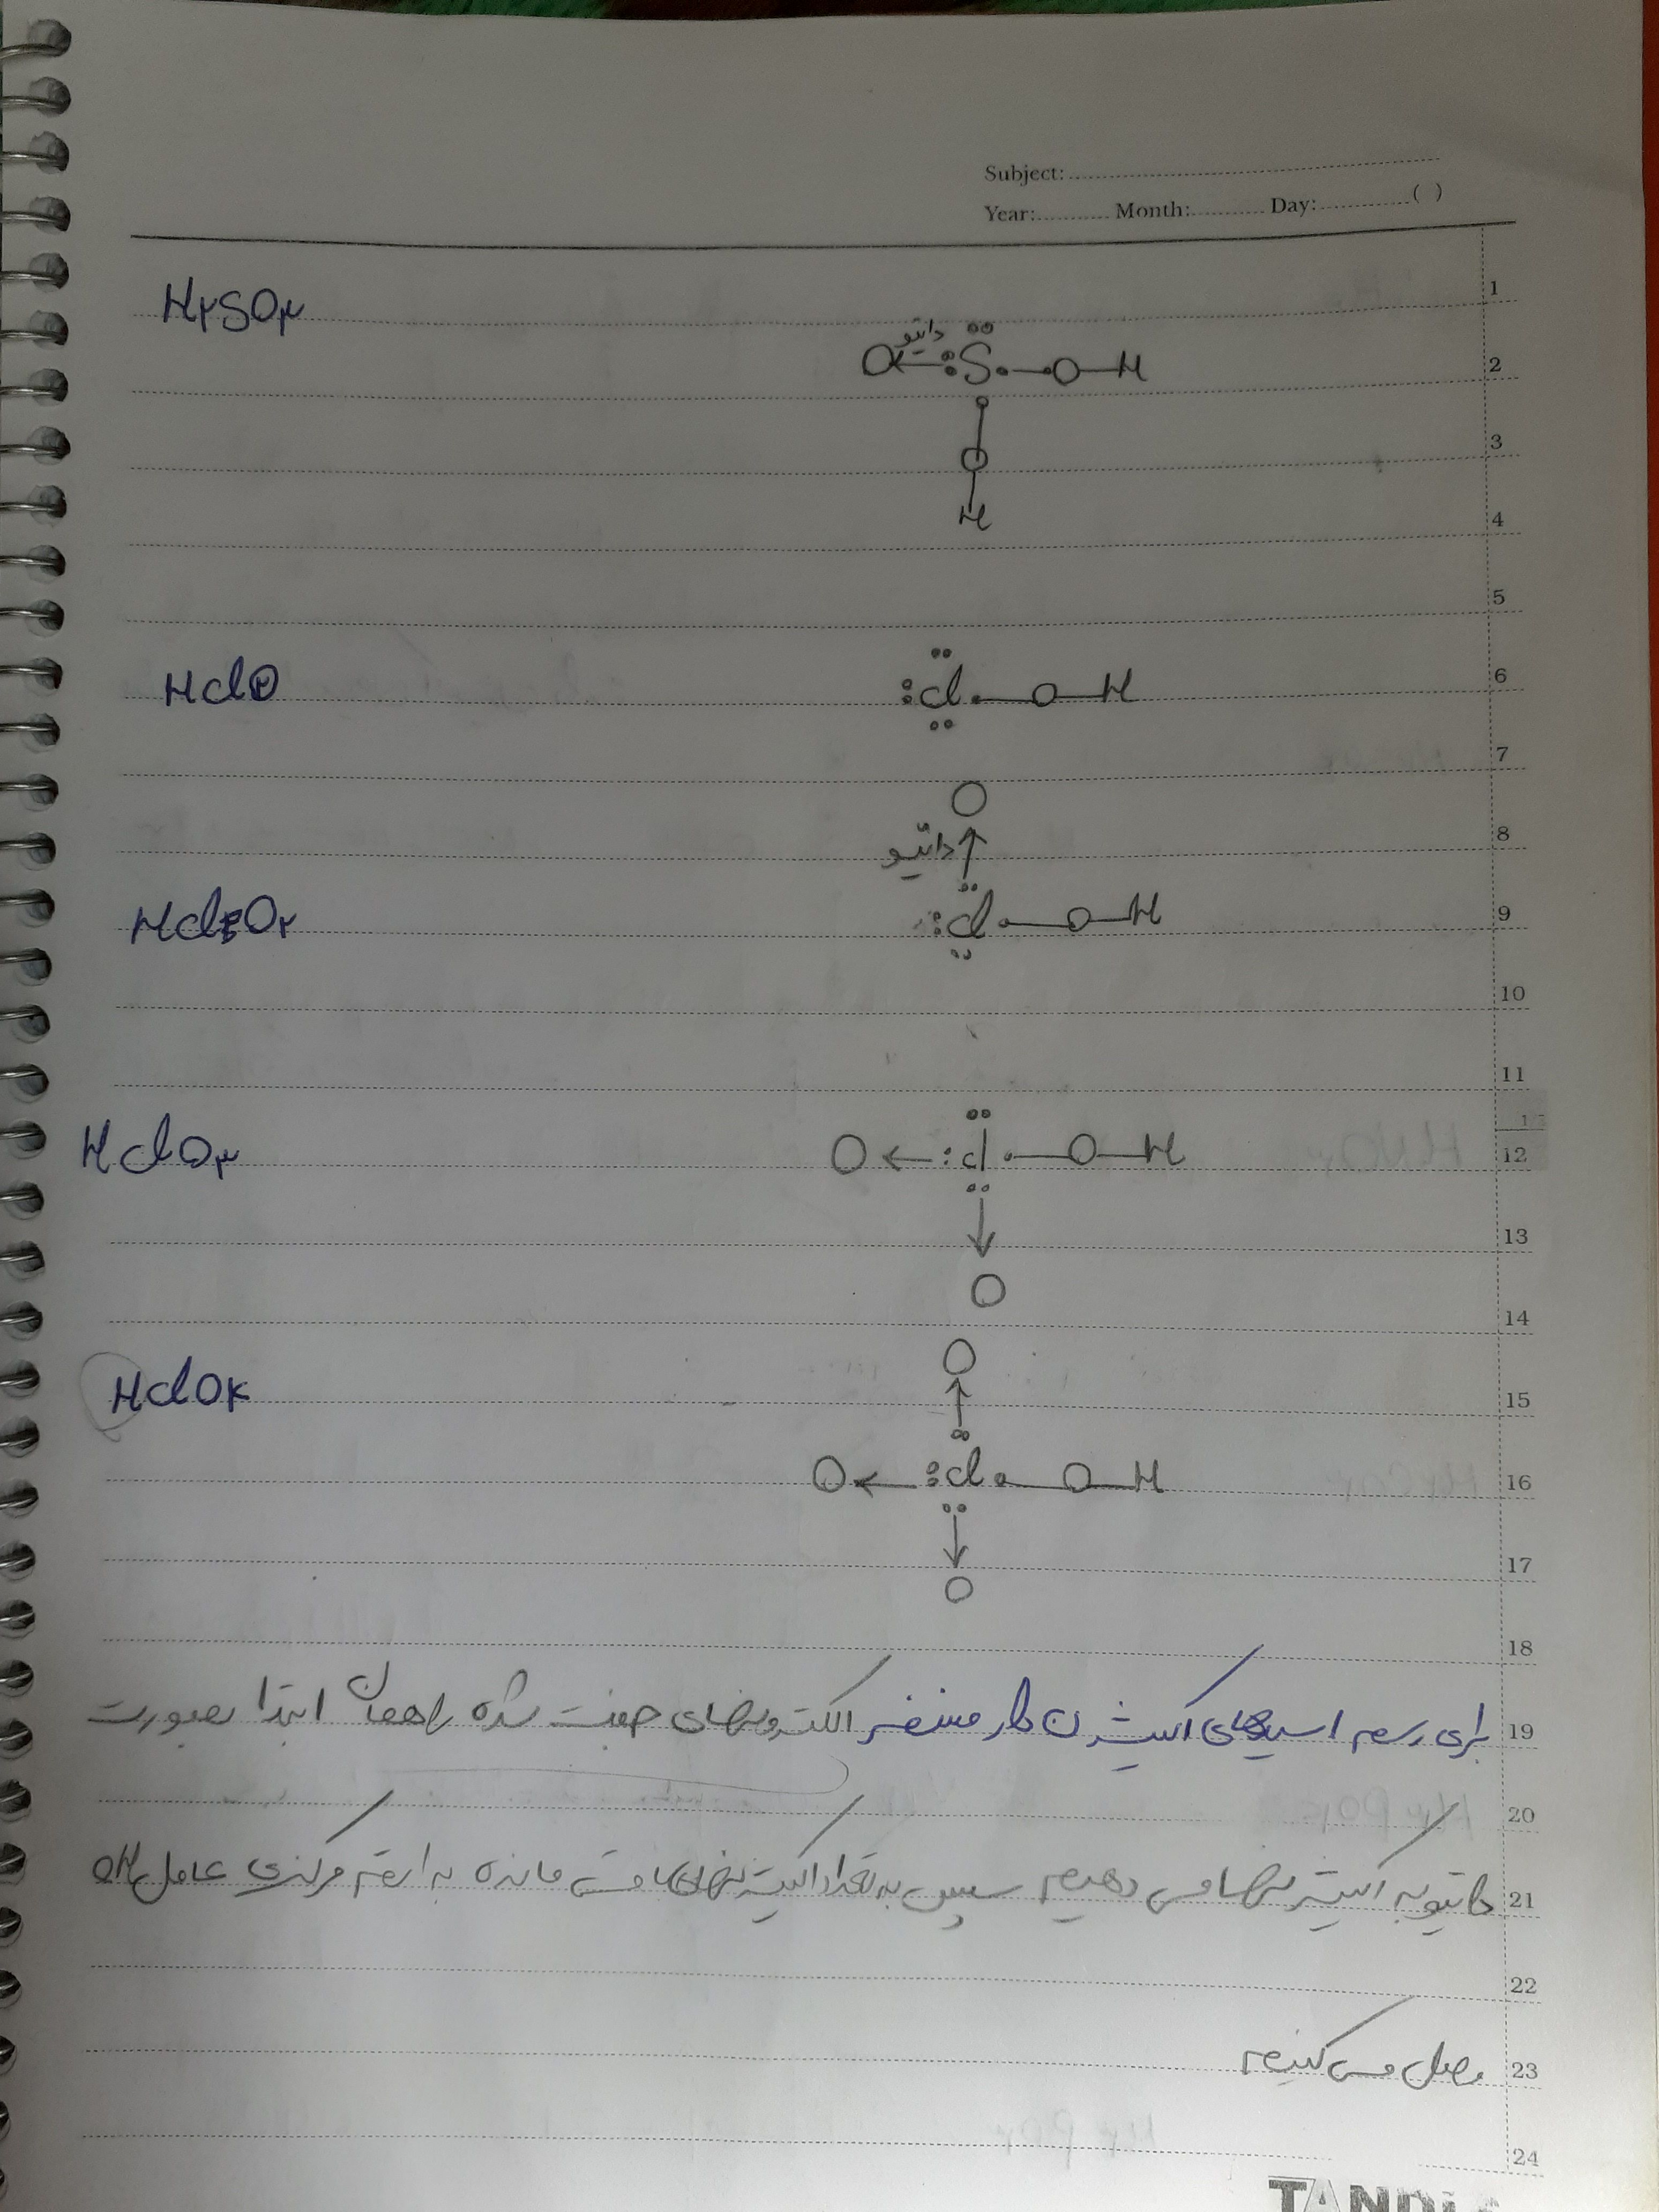 Subject:
Year: Month: Day: ( )
1
H₂SO₃
داتیو
O ← :S — O — H
2
O
3
H
4
5
HClO
:Cl — O — H
6
7
O
داتیو ↑
8
HClO₂
:Cl — O — H
9
10
11
HClO₃
O ← :Cl — O — H
12
↓
13
O
14
O
HClO₄
↑
15
O ← :Cl — O — H
16
↓
17
O
18
برای رسم اسیدهای اکسیژن دار الکترونهای جفت شده را همان ابتدا بصورت
19
20
داتیو به اکسیژنها می دهیم سپس به تعداد اکسیژنهای باقی مانده به اتم مرکزی عامل OH
21
22
وصل می کنیم
23
24